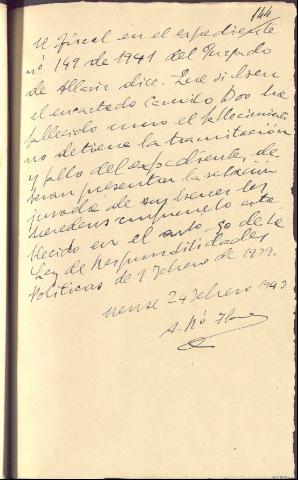 144
El fiscal en el expediente
nº 149 de 1941 del Juzgado
de Allariz dice: Que si bien
el encartado Camilo Boo ha
fallecido como el fallecimiento
no detiene la tramitación
y fallo del expediente, de
beran presentar la relación
jurada de sus bienes los
herederos conforme lo esta
blecido en el arto. 50 de la
Ley de Responsabilidades
Politicas de 9 Febrero de 1939.
Orense 24 Febrero 1943